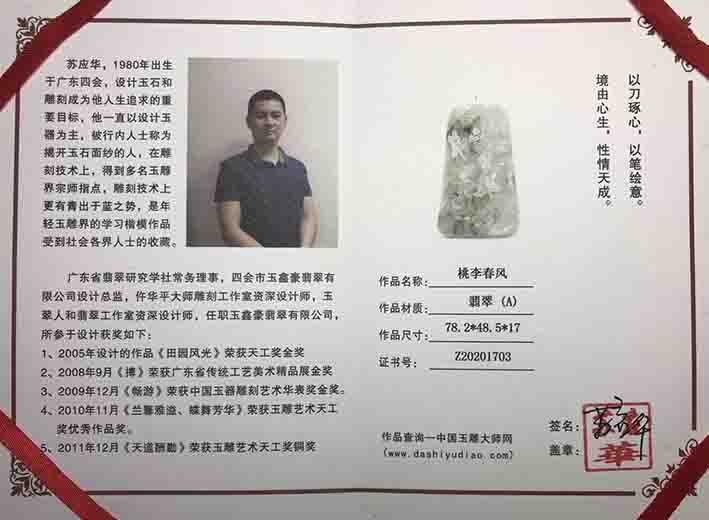 苏应华，1980年出生
于广东四会，设计玉石和
雕刻成为他人生追求的重
要目标，他一直以设计玉
器为主，被行内人士称为
揭开玉石面纱的人，在雕
刻技术上，得到多名玉雕
界宗师指点，雕刻技术上
更有青出于蓝之势，是年
轻玉雕界的学习楷模作品
受到社会各界人士的收藏。
广东省翡翠研究学社常务理事，四会市玉鑫豪翡翠有
限公司设计总监，仵华平大师雕刻工作室资深设计师，玉
翠人和翡翠工作室资深设计师，任职玉鑫豪翡翠有限公司，
所参于设计获奖如下：
1、2005年设计的作品《田园风光》荣获天工奖金奖
2、2008年9月《搏》荣获广东省传统工艺美术精品展金奖
3、2009年12月《畅游》荣获中国玉器雕刻艺术华表奖金奖。
4、2010年11月《兰馨雅溢、蝶舞芳华》荣获玉雕艺术天工
奖优秀作品奖。
5、2011年12月《天道酬勤》荣获玉雕艺术天工奖铜奖
以刀琢心，以笔绘意。
境由心生，性情天成。
作品名称： 桃李春风
作品材质： 翡翠（A）
作品尺寸： 78.2*48.5*17
证书号： Z20201703
作品查询—中国玉雕大师网
（www.dashiyudiao.com）
签名：
盖章：
華